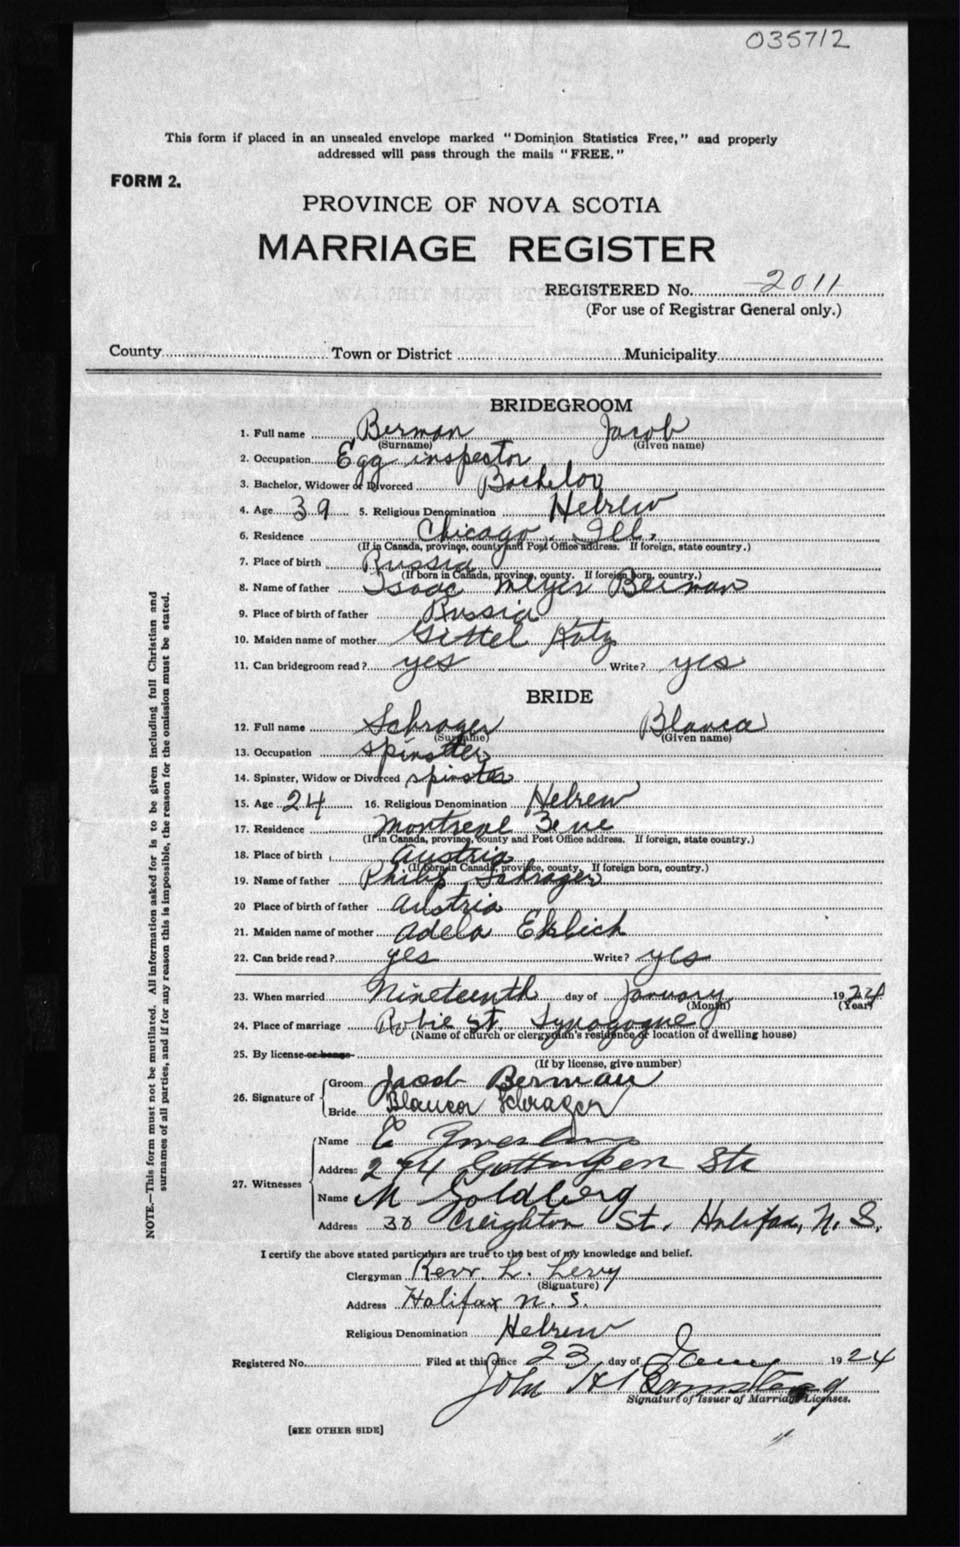 035712
This form if placed in an unsealed envelope marked "Dominion Statistics Free," and properly
addressed will pass through the mails "FREE."
FORM 2.
PROVINCE OF NOVA SCOTIA
MARRIAGE REGISTER
REGISTERED No. 2011
(For use of Registrar General only.)
County Town or District Municipality
BRIDEGROOM
1. Full name Berman Jacob
(Surname) (Given name)
2. Occupation Egg inspector
3. Bachelor, Widower or Divorced Bachelor
4. Age 39 5. Religious Denomination Hebrew
6. Residence Chicago, Ill.
(If in Canada, province, county and Post Office address. If foreign, state country.)
7. Place of birth Russia
(If born in Canada, province, county. If foreign born, country.)
8. Name of father Isaac Meyer Berman
9. Place of birth of father Russia
10. Maiden name of mother Gittel Katz
11. Can bridegroom read? yes Write? yes
BRIDE
12. Full name Schrager Blanca
(Surname) (Given name)
13. Occupation spinster
14. Spinster, Widow or Divorced spinster
15. Age 24 16. Religious Denomination Hebrew
17. Residence Montreal
(If in Canada, province, county and Post Office address. If foreign, state country.)
18. Place of birth Austria
(If born in Canada, province, county. If foreign born, country.)
19. Name of father Philip Schrager
20 Place of birth of father Austria
21. Maiden name of mother Adela Ehrlich
22. Can bride read? yes Write? yes
23. When married Nineteenth day of January 1924
(Month) (Year)
24. Place of marriage Robie St. Synagogue
(Name of church or clergyman's residence or location of dwelling house)
25. By license or banns
(If by license, give number)
26. Signature of Groom Jacob Berman
Bride Blanca Schrager
27. Witnesses
Name
Address 274 Gottingen Str
Name M Goldberg
Address 30 Creighton St. Halifax, N. S.
I certify the above stated particulars are true to the best of my knowledge and belief.
Clergyman Revr. L. Levy
(Signature)
Address Halifax N. S.
Religious Denomination Hebrew
Registered No. Filed at this office 23 day of Jany 1924
John H
Signature of Issuer of Marriage Licenses.
[SEE OTHER SIDE]
NOTE.—This form must not be mutilated. All information asked for is to be given including full Christian and
surnames of all parties, and if for any reason this is impossible, the reason for the omission must be stated.